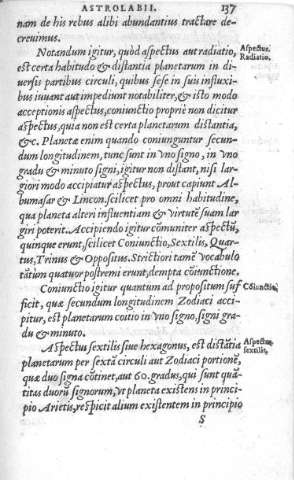 ASTROLABII. 137
nam de his rebus alibi abundantius tractare de-
creuimus.
Notandum igitur, quòd aspectus aut radiatio,
Aspectus.
Radiatio.
est certa habitudo & distantia planetarum in di-
uersis partibus circuli, quibus sese in suis influxi-
bus iuuant aut impediunt notabiliter, & isto modo
acceptionis aspectus, coniunctio propriè non dicitur
aspectus, quia non est certa planetarum distantia,
&c. Planetæ enim quando coniunguntur secun-
dum longitudinem, tunc sunt in vno signo, in vno
gradu & minuto signi, igitur non distant, nisi lar-
giori modo accipiatur aspectus, prout capiunt Al-
bumasar & Lincon. scilicet pro omni habitudine,
qua planeta alteri influentiam & virtutē suam lar
giri poterit. Accipiendo igitur cōmuniter aspectū,
quinque erunt, scilicet Coniunctio, Sextilis, Quar-
tus, Trinus & Oppositus. Strictiori tamē vocabulo
tātùm quatuor postremi erunt, dempta cōiunctione.
Coniunctio igitur quantum ad propositum suf
Cōiunctio.
ficit, quæ secundum longitudinem Zodiaci acci-
pitur, est planetarum coatio in vno signo, signi gra-
du & minuto.
Aspectus sextilis siue hexagonus, est distātia
Aspectus
sextilis.
planetarum per sextā circuli aut Zodiaci portionē,
quæ duo signa cōtinet, aut 60. gradus, qui sunt quā-
titas duorū signorum, vt planeta existens in princi-
pio Arietis, respicit alium existentem in principio
S